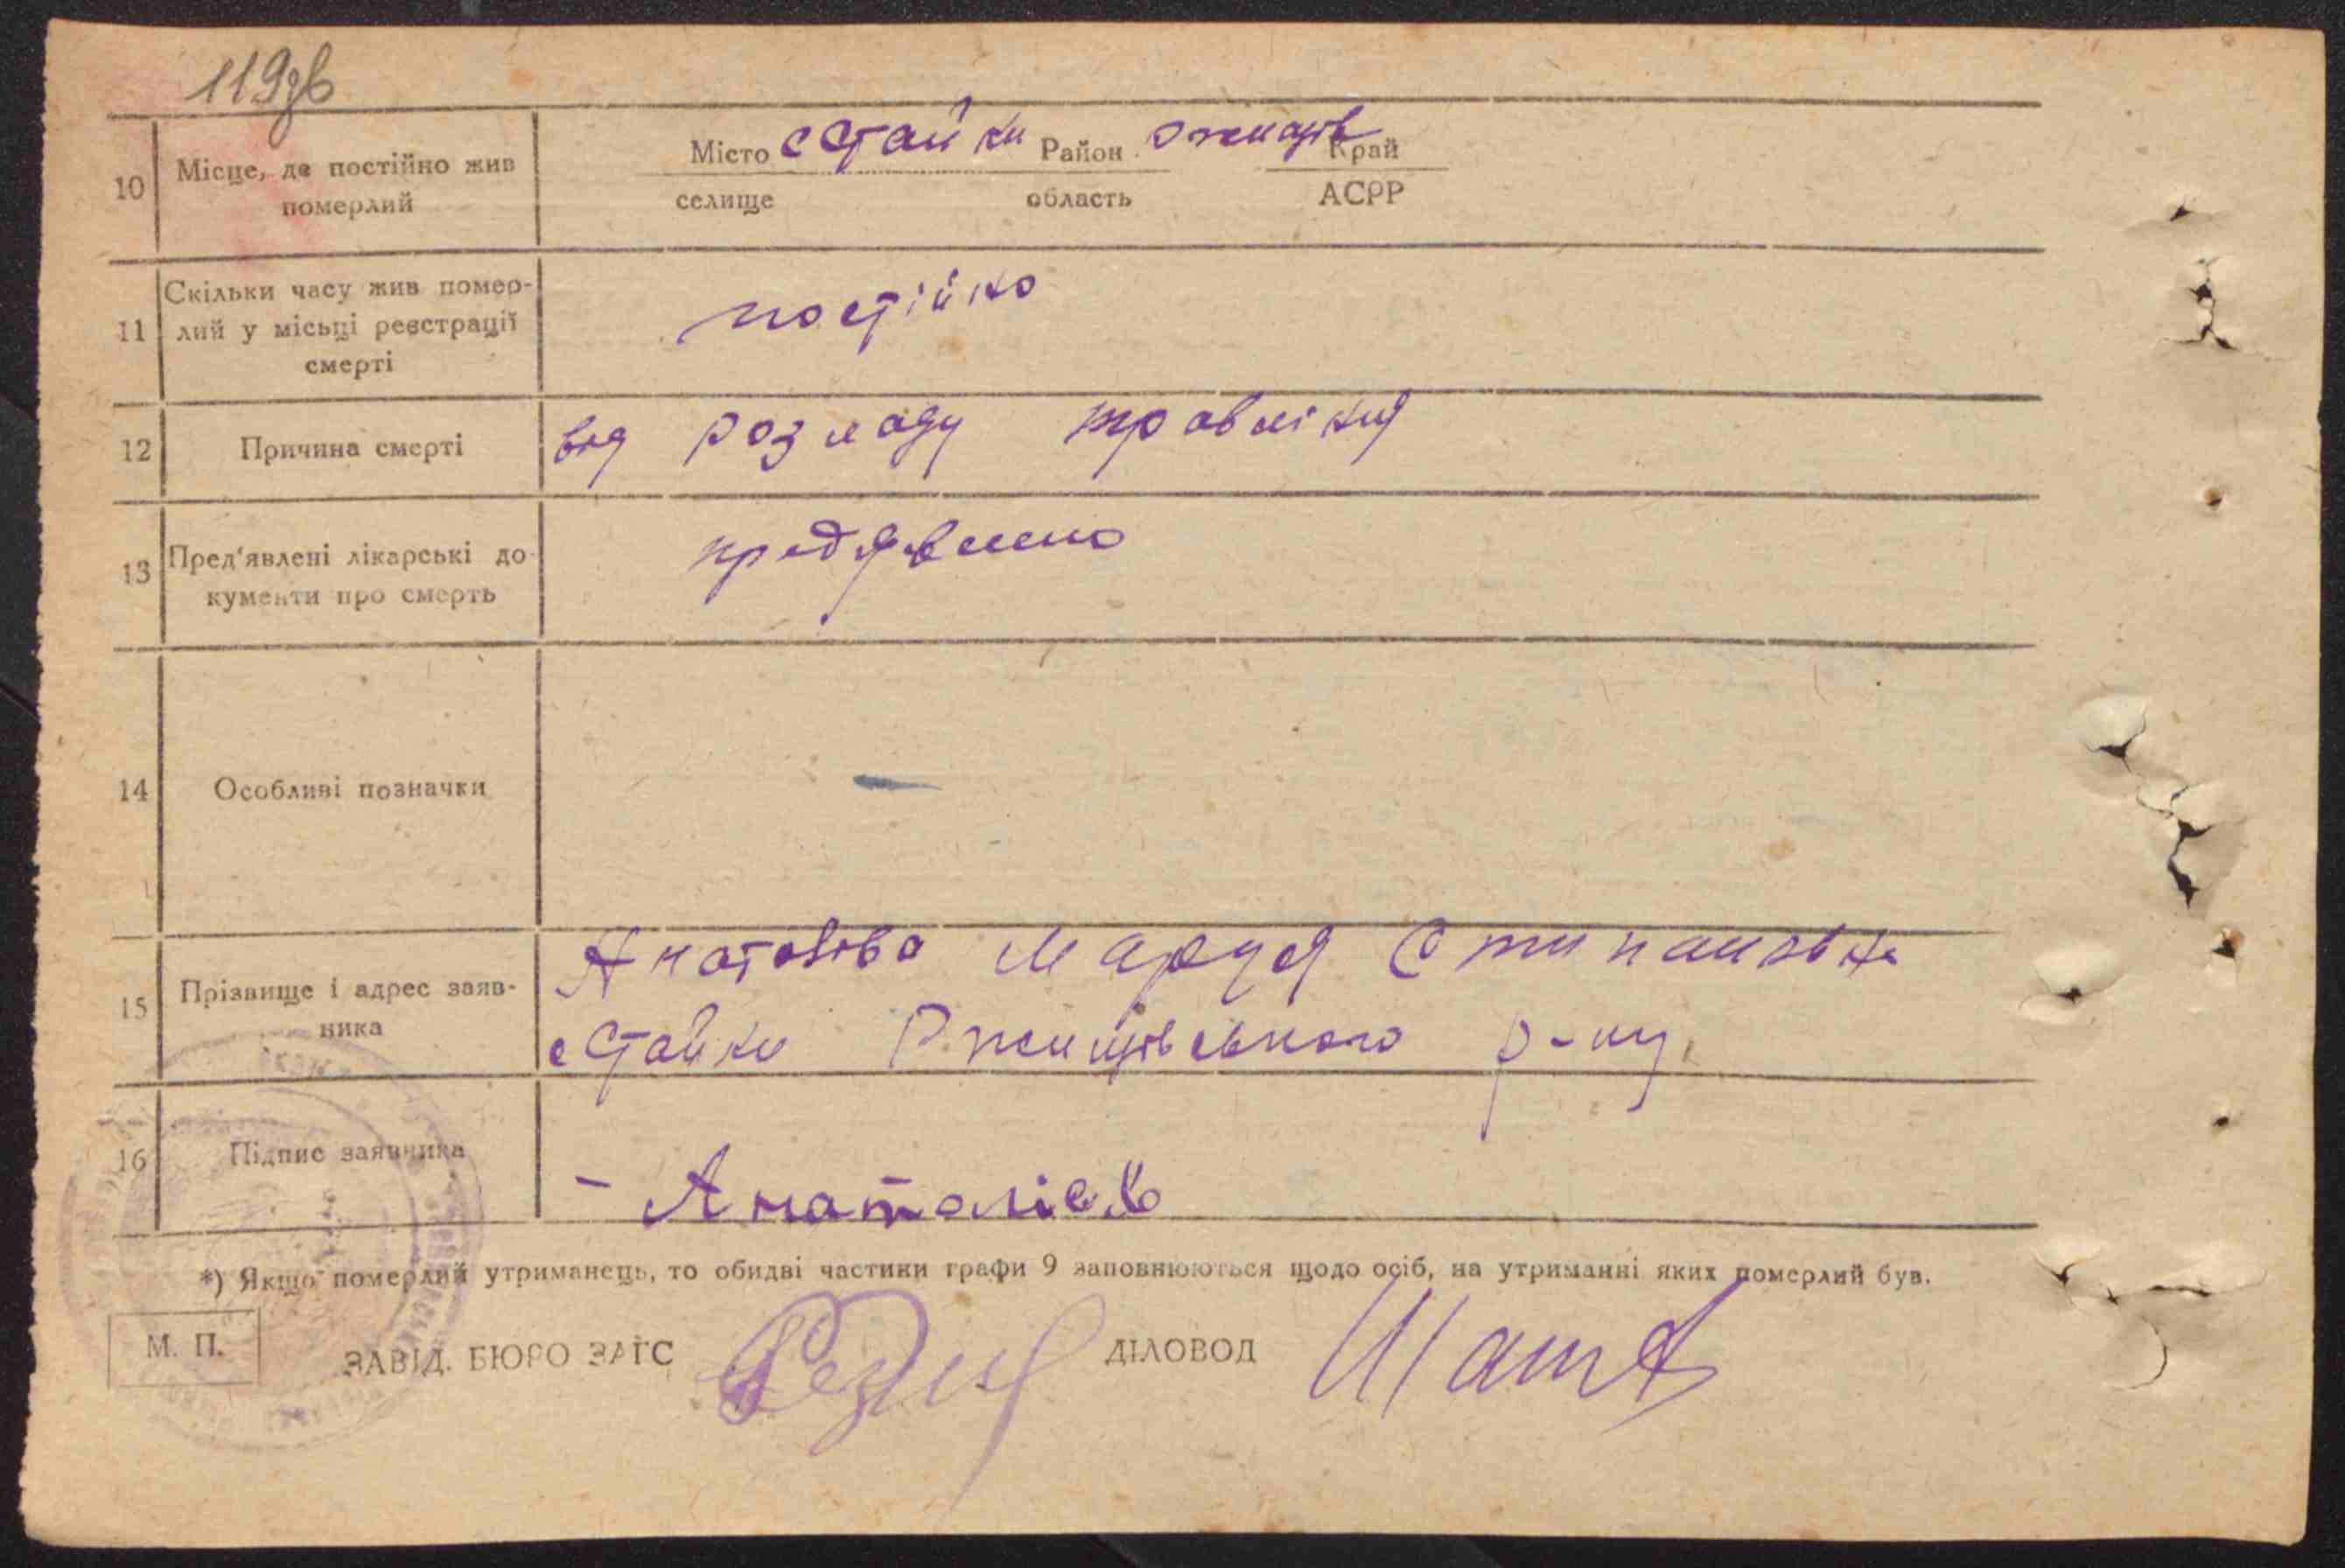 119зв
10 Місце, де постійно жив померлий
Місто с Стайки Район Ржищів Край
селище область АСРР
11 Скільки часу жив помер-
лий у місьці реєстрації
смерті
постійно
12 Причина смерті
від розладу травління
13 Пред'явлені лікарські до-
кументи про смерть
предявлено
14 Особливі позначки
—
15 Прізвище і адрес заяв-
ника
Маруся
с Стайки Ржищівського р-ну
16 Підпис заявника
*) Якщо померлий утриманець, то обидві частини графи 9 заповнюються щодо осіб, на утриманні яких померлий був.
М. П.
ЗАВІД. БЮРО ЗАГС
ДІЛОВОД